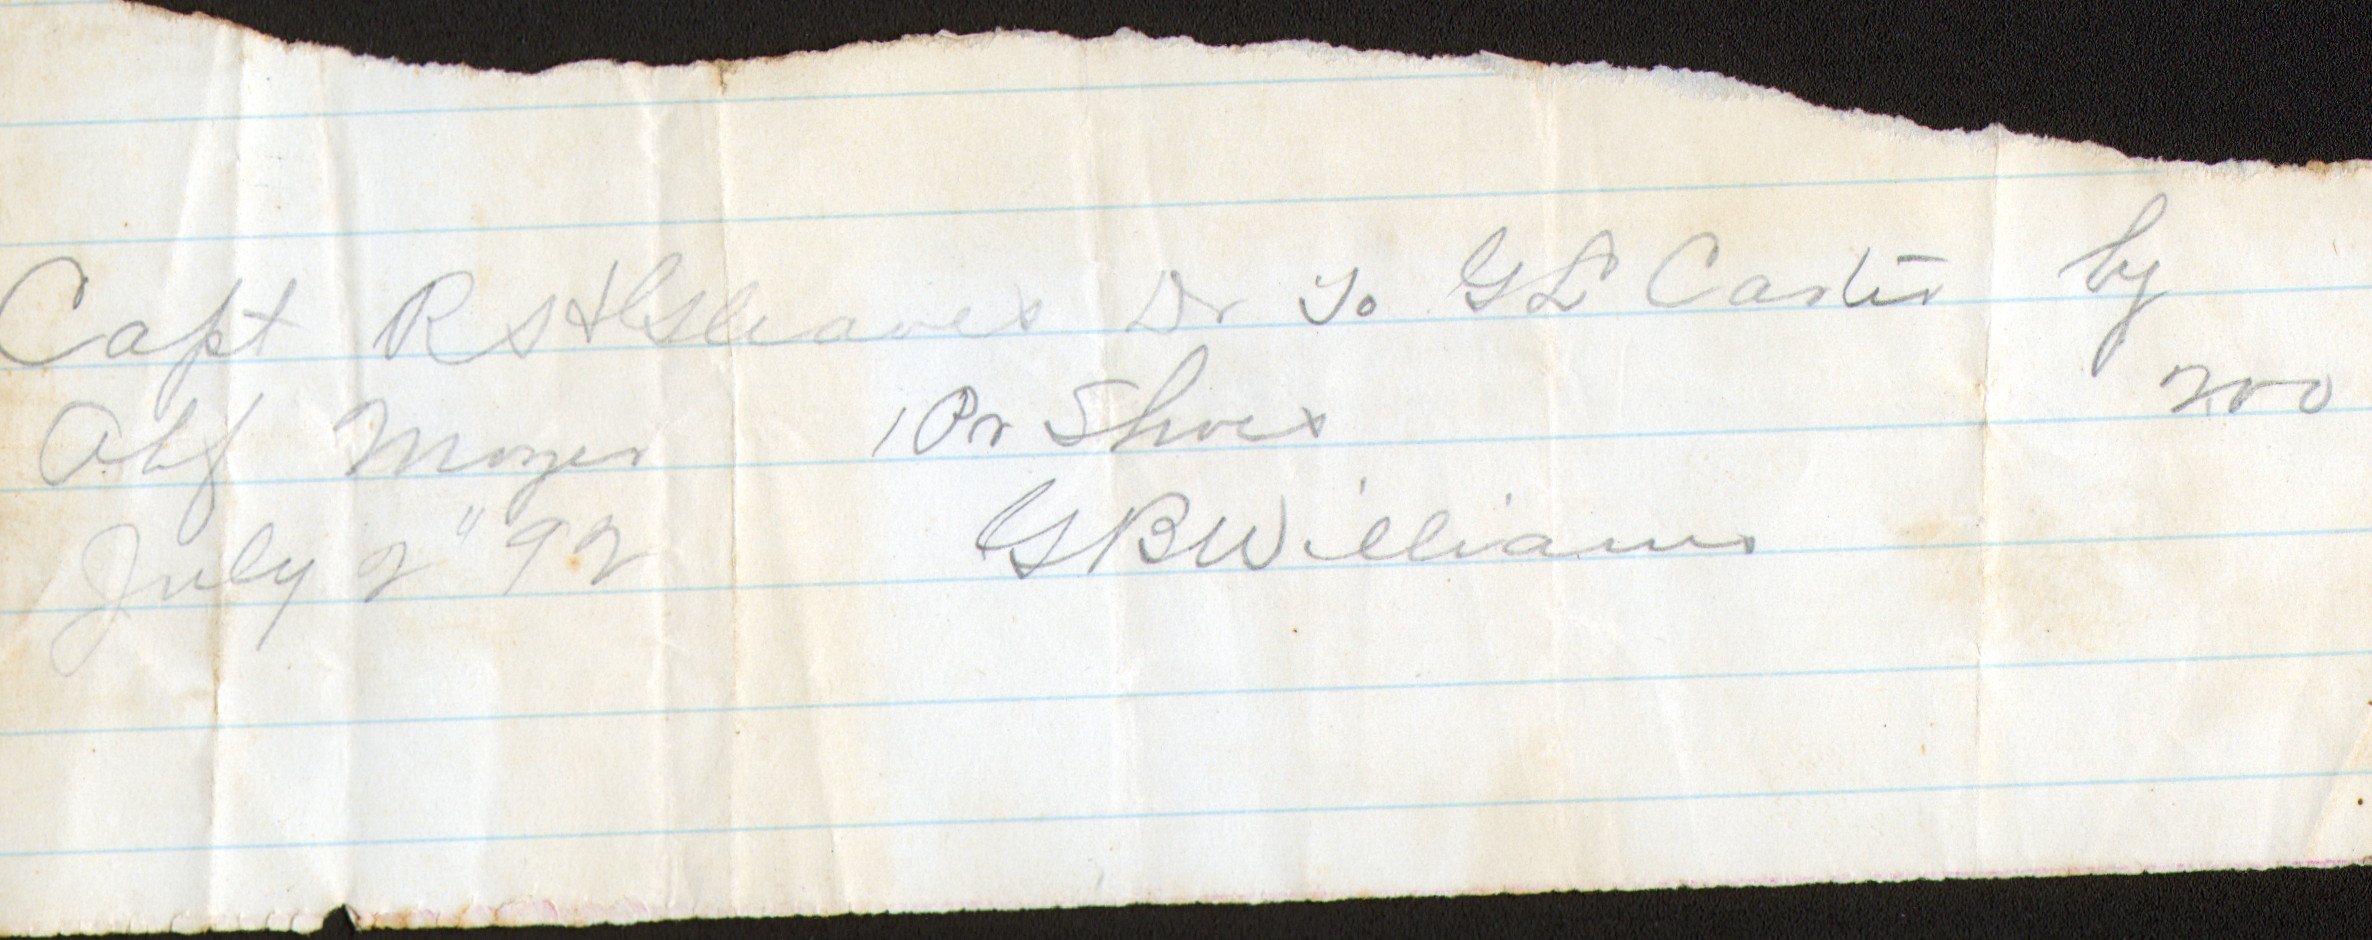 Capt R S H Gleaves Dr To G L Carter by
Alf Moyer 1 Pr Shoes 200
July 2" 92 G B Williams